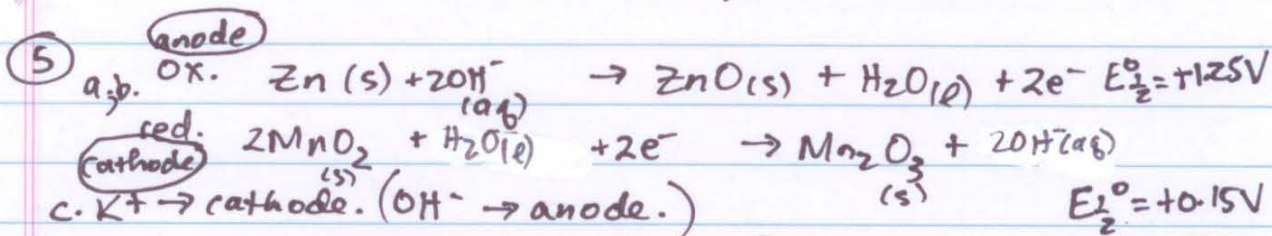 anode
5 a,b. ox. Zn (s) + 2OH⁻ (aq) → ZnO(s) + H₂O(l) + 2e⁻ E°½=+1.25V
red. cathode 2MnO₂ (s) + H₂O(l) +2e⁻ → Mn₂O₃ (s) + 2OH⁻(aq)
c. K+ → cathode. (OH⁻ → anode.) E½°=+0.15V